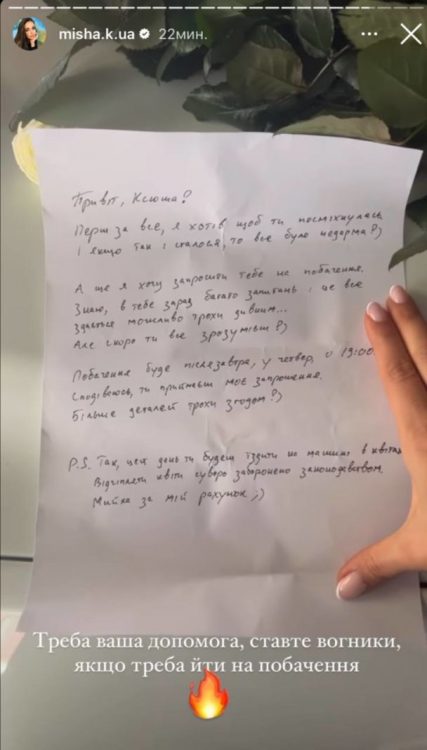 misha.k.ua 22мин.
Привіт, Ксюша?
Перш за все, я хотів щоб ти посміхнулась
і якщо так і сталося, то все було недарма?)
А ще я хочу запросити тебе на побачення.
Знаю, в тебе зараз багато запитань і це все
здається можливо трохи дивним...
Але скоро ти все зрозумієш?)
Побачення буде післезавтра, у четвер, о 19:00.
Сподіваюсь, ти приймеш моє запрошення.
Більше деталей трохи згодом?)
P.S. Так, цей день ти будеш їздити на машині в квітах
Відчіпляти квіти суворо заборонено законодавством.
Мийка за мій рахунок ;)
Треба ваша допомога, ставте вогники,
якщо треба йти на побачення